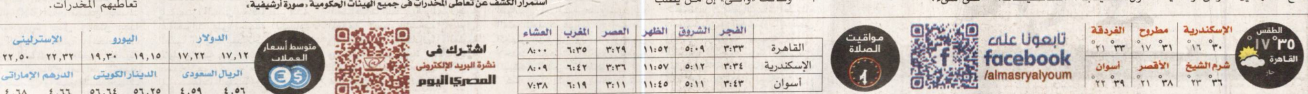 تعاطيهم المخدرات.
استمرار الكشف عن تعاطى المخدرات فى جميع الهيئات الحكومية «صورة أرشيفية»
الطقس
٣٥° ١٧°
القاهرة
حار
الإسكندرية ٣٠° ١٦°
مطروح ٣١° ١٧°
الغردقة ٣٣° ٢١°
شرم الشيخ ٣٦° ٢٣°
الأقصر ٣٨° ٢١°
أسوان ٣٩° ٢٢°
تابعونا على
facebook
/almasryalyoum
مواقيت الصلاة
الفجر الشروق الظهر العصر المغرب العشاء
القاهرة ٣:٣٣ ٥:٠٩ ١١:٥٢ ٣:٢٩ ٦:٣٥ ٨:٠٠
الإسكندرية ٣:٣٤ ٥:١٢ ١١:٥٧ ٣:٣٦ ٦:٤٢ ٨:٠٩
أسوان ٣:٤٣ ٥:١١ ١١:٤٥ ٣:١١ ٦:١٩ ٧:٣٨
اشترك فى
نشرة البريد الإلكترونى
المصرى اليوم
متوسط أسعار العملات
الدولار ١٧,١٢ ١٧,٢٢
اليورو ١٩,١٥ ١٩,٣٠
الإسترلينى ٢٢,٣٢ ٢٢,٥٠
الريال السعودى ٤,٥٦ ٤,٥٩
الدينار الكويتى ٥٦,٢٥ ٥٦,٦٤
الدرهم الإماراتى ٤,٦٦ ٤,٦٨